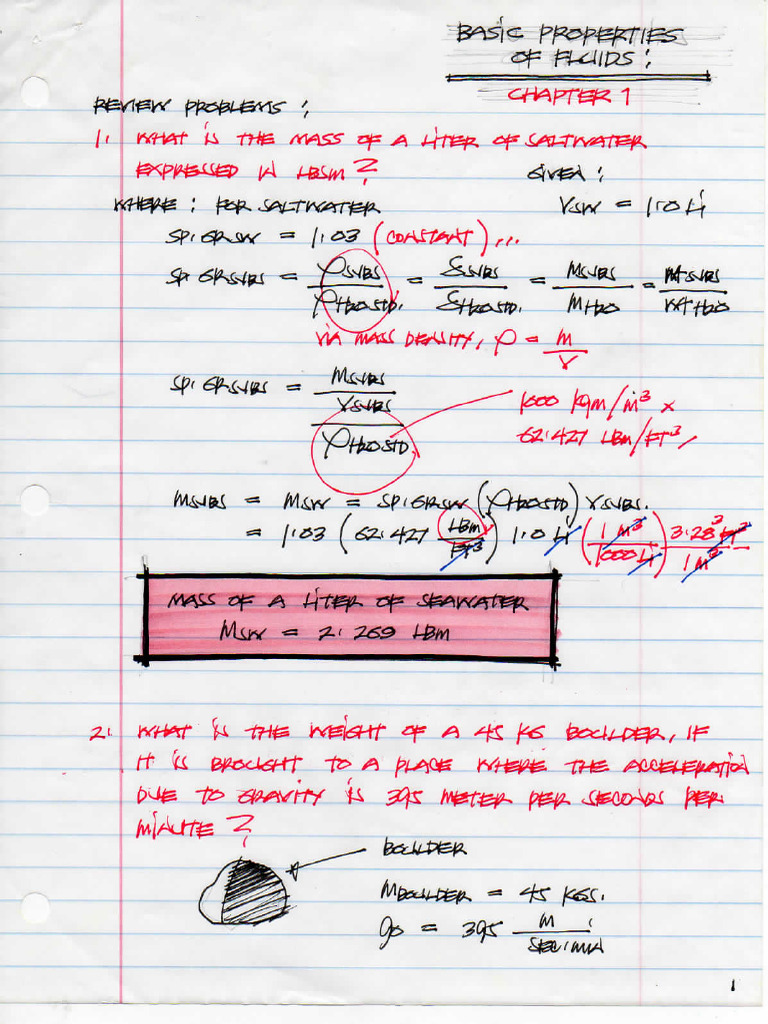 BASIC PROPERTIES
OF FLUIDS:
CHAPTER 1
REVIEW PROBLEMS:
1. WHAT IS THE MASS OF A LITER OF SALTWATER
EXPRESSED IN LBSM?
GIVEN:
WHERE: FOR SALTWATER
VSW = 1.0 Li
SP. GRSW = 1.03 (CONSTANT)...
SP GRSUBS = ρSUBS / ρH2OSTD. = δSUBS / δH2OSTD. = MSUBS / MH2O = WTSUBS / WTH2O
VIA MASS DENSITY, ρ = M / V
SP. GRSUBS = MSUBS / VSUBS / ρH2OSTD.
1000 KGM/M³ x
62.427 LBM/FT³
MSUBS = MSW = SP. GRSW (ρH2OSTD) VSUBS.
= 1.03 (62.427 LBM / FT³) 1.0 Li (1 M³ / 1000 Li) 3.28³ FT³ / 1 M³
MASS OF A LITER OF SEAWATER
MSW = 2.269 LBM
2. WHAT IS THE WEIGHT OF A 45 KG BOULDER, IF
IT IS BROUGHT TO A PLACE WHERE THE ACCELERATION
DUE TO GRAVITY IS 395 METER PER SECONDS PER
MINUTE?
BOULDER
MBOULDER = 45 KGS.
go = 395 M / SEC.MIN
1